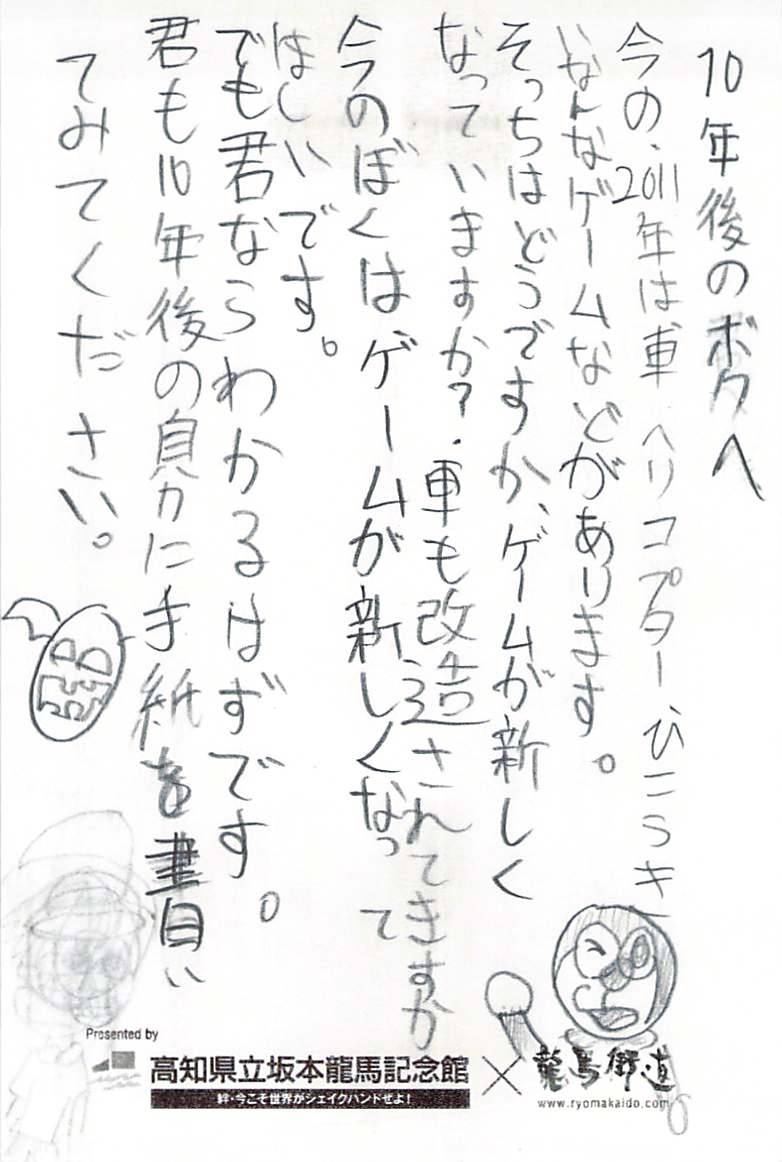 10年後のボクへ
今の、2011年は車、ヘリコプター、ひこうき
いなんなゲームなどがあります。
そっちはどうですか、ゲームが新しく
なっていますか?車も改造されてきすか
今のぼくは、ゲームが新しくなって
ほしいです。
でも君ならわかるはずです。
君も10年後の自分に手紙を書い
てみてください。
Presented by
高知県立坂本龍馬記念館
絆・今こそ世界がシェイクハンドせよ!
×
龍馬街・道
www.ryomakaido.com